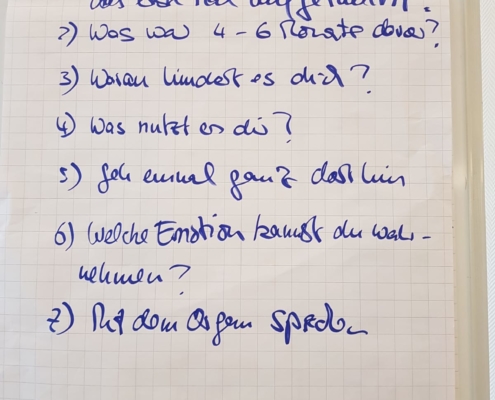 2) Was war 4-6 Monate davor?
3) Woran hindert es dich?
4) Was nutzt es dir?
5) Geh einmal ganz dort hin
6) Welche Emotion kannst du wahr-
nehmen?
7) Mit dem Organ sprechen